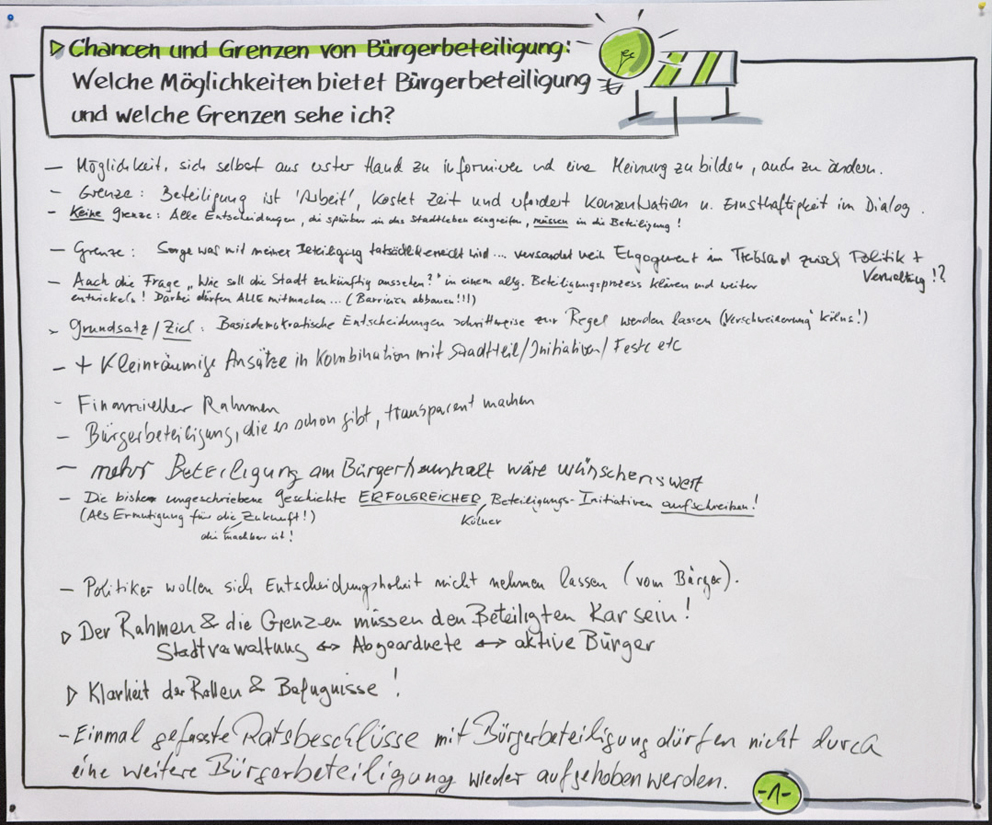 ▷ Chancen und Grenzen von Bürgerbeteiligung:
Welche Möglichkeiten bietet Bürgerbeteiligung
und welche Grenzen sehe ich?
– Möglichkeit, sich selbst aus erster Hand zu informieren und eine Meinung zu bilden, auch zu ändern.
– Grenze: Beteiligung ist 'Arbeit', kostet Zeit und erfordert Konzentration u. Ernsthaftigkeit im Dialog.
– Keine Grenze: Alle Entscheidungen, die spürbar in das Stadtleben eingreifen, müssen in die Beteiligung!
– Grenze: Sorge was mit meiner Beteiligung tatsächlich erreicht wird... versandet mein Engagement im Treibsand zwisch Politik +
Verwaltung!?
– Auch die Frage „Wie soll die Stadt zukünftig aussehen?" in einem allg. Beteiligungsprozess klären und weiter
entwickeln! Dabei dürfen ALLE mitmachen... (Barrieren abbauen!!!)
– Grundsatz/Ziel: Basisdemokratische Entscheidungen schrittweise zur Regel werden lassen ("Verschweizerung" Kölns!)
– + Kleinräumige Ansätze in Kombination mit Stadtteil/Initiativen/Feste etc
– Finanzieller Rahmen
– Bürgerbeteiligung, die es schon gibt, transparent machen
– mehr Beteiligung am Bürgerhaushalt wäre wünschenswert
– Die bisher ungeschriebene Geschichte ERFOLGREICHER Beteiligungs-Initiativen aufschreiben!
(Als Ermutigung für die Zukunft!) Kölner
die machbar ist!
– Politiker wollen sich Entscheidungshoheit nicht nehmen lassen (vom Bürger).
▷ Der Rahmen & die Grenzen müssen den Beteiligten Kar sein!
Stadtverwaltung ↔ Abgeordnete ↔ aktive Bürger
▷ Klarheit der Rollen & Befugnisse!
– Einmal gefasste Ratsbeschlüsse mit Bürgerbeteiligung dürfen nicht durch
eine weitere Bürgerbeteiligung wieder aufgehoben werden.
-1-